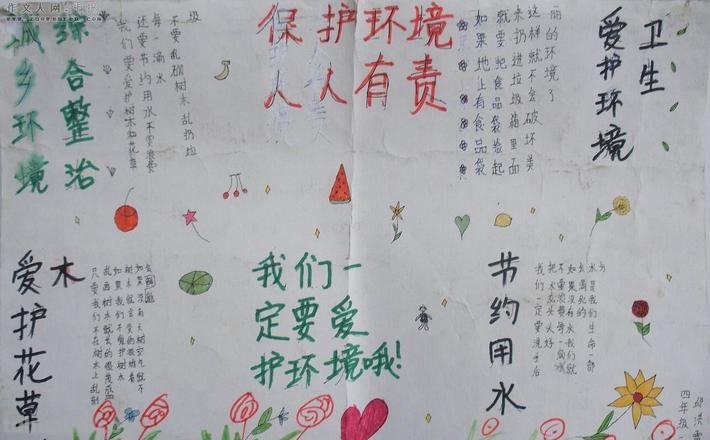 作文人网
保护环境
人人有责
城乡环境
综合整治
我们要爱护树木和花草
还要节约用水不要浪费
每一滴水
不要乱砍树木乱扔垃
圾
如果地上有食品袋
就要把食品袋捡起
来扔进垃圾箱里面
这样就不会破坏美
丽的环境了
爱护环境
卫生
爱护花草
木
只要我们不在树木上乱刻
如果我们不爱护树木
我们一
定要爱
护环境哦!
节约用水
我们一定要洗手后
把水龙头关好
如果没有水我们就
水是我们生命一部
分
四年级